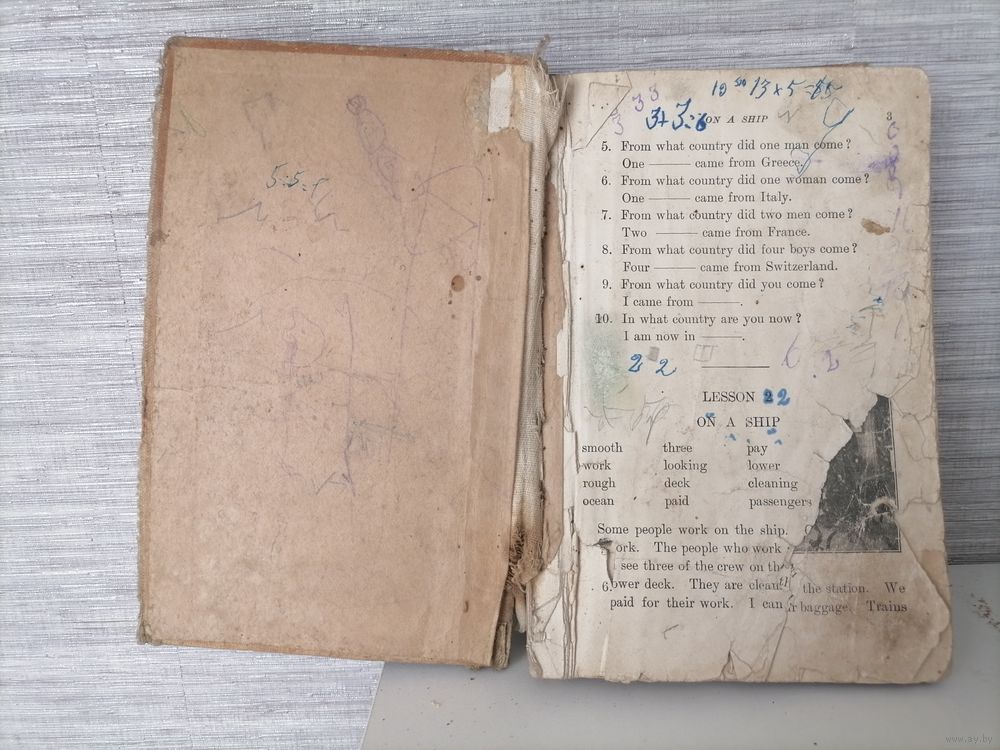 19 13 x 5 = 65
3 3
3
3+3=6
ON A SHIP 3
5. From what country did one man come?
One ——— came from Greece.
6. From what country did one woman come?
One ——— came from Italy.
7. From what country did two men come?
Two ——— came from France.
8. From what country did four boys come?
Four ——— came from Switzerland.
9. From what country did you come?
I came from ———.
10. In what country are you now?
I am now in ———.
2 2 2
LESSON 22
ON A SHIP
smooth three pay
work looking lower
rough deck cleaning
ocean paid passengers
Some people work on the ship.
ork. The people who work
see three of the crew on th
6. ower deck. They are clean the station. We
paid for their work. I can r baggage. Trains
www.ay.by